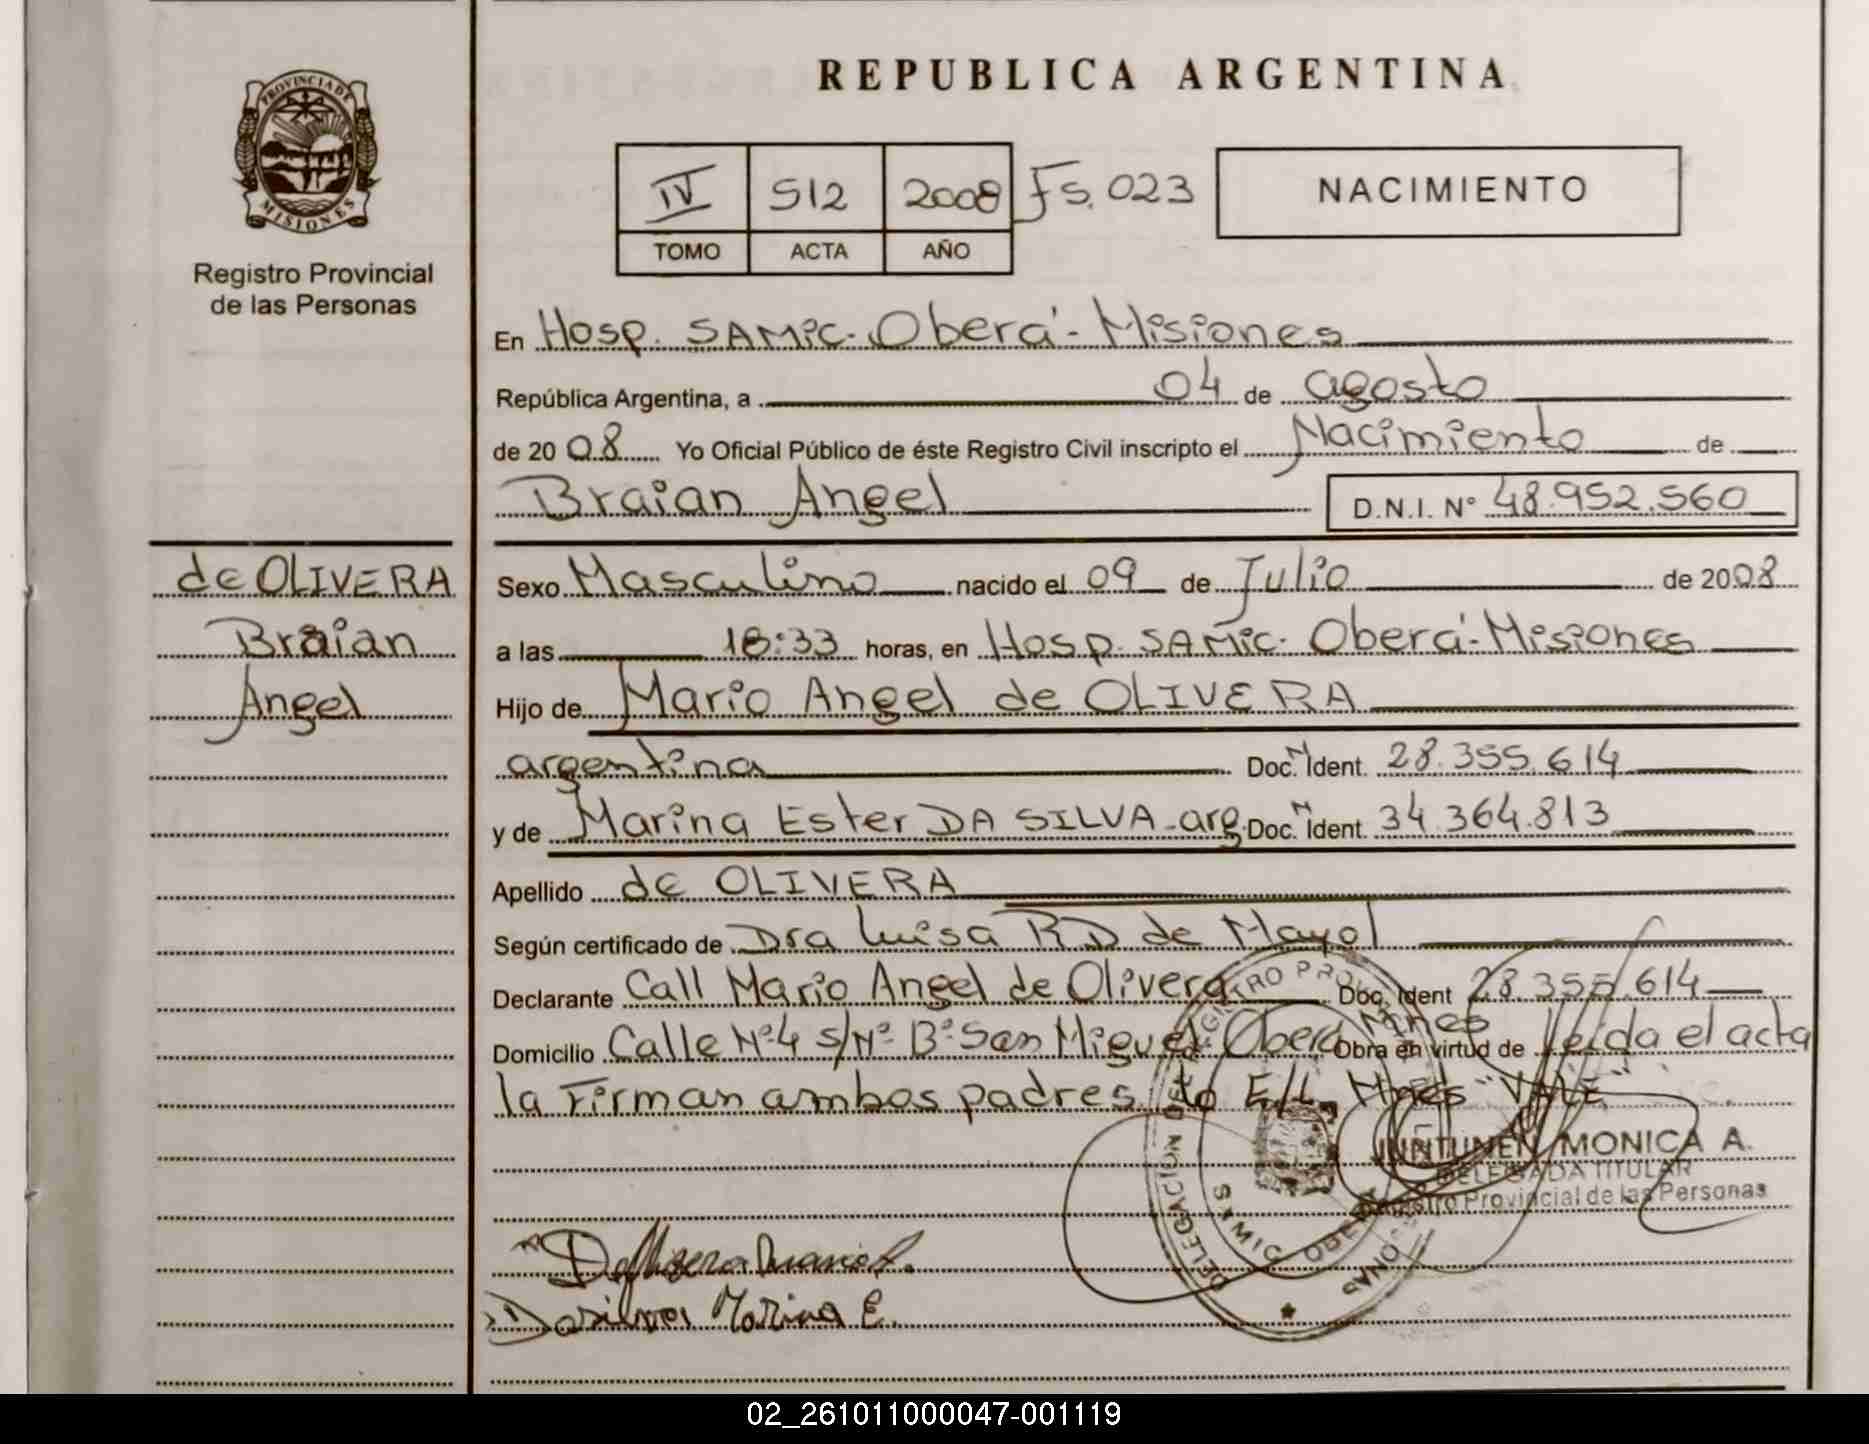 REPUBLICA ARGENTINA
PROVINCIA DE MISIONES
Registro Provincial
de las Personas
IV 512 2008 Fs. 023
TOMO ACTA AÑO
NACIMIENTO
En Hosp. SAMIC - Oberá - Misiones
República Argentina, a 04 de agosto
de 2008 Yo Oficial Público de éste Registro Civil inscripto el Nacimiento de
Braian Angel D.N.I. N° 48.952.560
de OLIVERA
Braian
Angel
Sexo Masculino nacido el 09 de Julio de 2008
a las 18:33 horas, en Hosp. SAMIC - Oberá - Misiones
Hijo de Mario Angel de OLIVERA
argentina Doc. N Ident. 28.355.614
y de Marina Ester DA SILVA - arg. Doc. N Ident. 34.364.813
Apellido de OLIVERA
Según certificado de Dra Luisa RD de Mayol
Declarante Call Mario Angel de Olivera Doc. Ident 28.355.614
Domicilio Calle N°4 S/N° B° San Miguel Oberá Mnes Obra en virtud de leida el acta
la Firman ambos padres. E/L Mnes "VALE"
MONICA A.
DELEGADA TITULAR
Registro Provincial de las Personas
DELEGACION DEL REGISTRO PROVINCIAL PERSONAS
SAMIC OBERA
Da Silva Marina E.
02_261011000047-001119